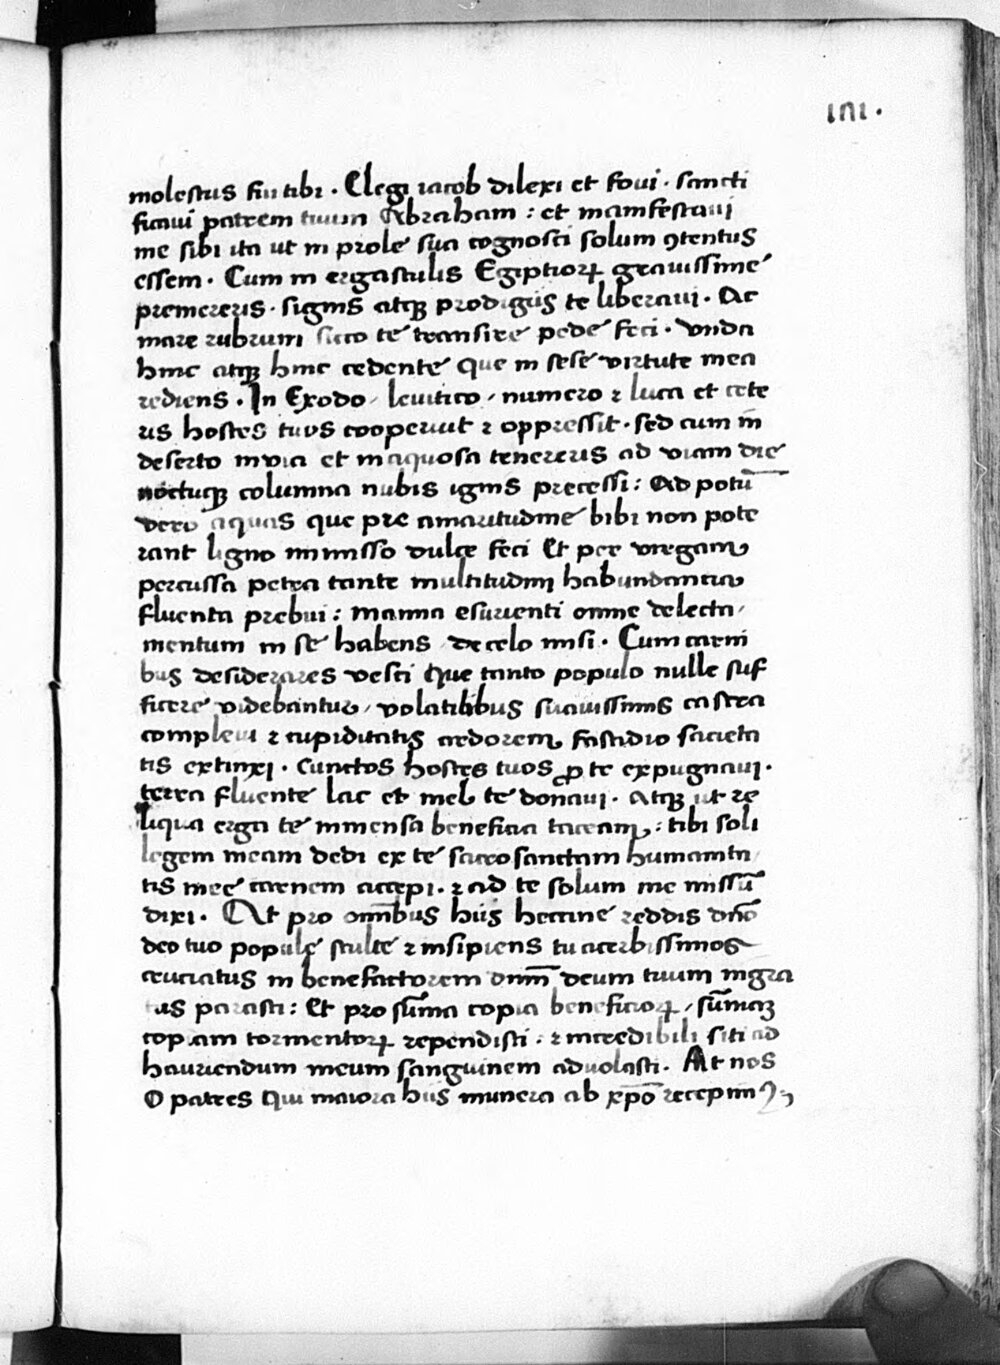 ıııı.
molestus fui tibi . Elegi iacob dilexi et foui . sancti
ficaui patrem tuum Abraham : et manifestaui
me sibi ita ut in prole sua cognosci solum ꝯtentus
essem . Cum in ergastulis Egiptioꝝ grauissime
premereris . signis atqꝫ prodigiis te liberaui . Ac
mare rubrum sicco te transire pede feci . vnda
hinc atqꝫ hinc cedente que in sese virtute mea
rediens . In Exodo / leuitico / numero ⁊ luca et cete
ris hostes tuos cooperuit ⁊ oppressit . sed cum in̄
deserto inuia et inaquosa tenereris ad viam die
noctuqꝫ columna nubis ignis precessi : Ad potū
vero aquas que pre amaritudine bibi non pote
rant ligno immisso dulce feci Et per virgam
percussa petra tante multitudini habundantia
fluenta prebui : manna esurienti omne delecta /
mentum in se habens de celo misi . Cum carni
bus desiderares vesci Que tanto populo nulle suf
ficere videbantur / volatilibus suauissimis castra
compleui ⁊ cupiditatis ardorem fastidio sacieta
tis extinxi . Cunctos hostes tuos ꝓ te expugnaui .
terra fluente lac et mel te donaui . Atqꝫ ut re
liqua erga te inmensa beneficia taceam : tibi soli
legem meam dedi ex te sacrosanctam humanita /
tis mee carnem accepi . ⁊ ad te solum me missū
dixi . At pro om̄ibus hiis heccine reddis dn̄o
deo tuo popule stulte ⁊ insipiens tu acerbissimos
cruciatus in benefactorem dn̄m deum tuum ingra
tus parasti : Et pro sūma copia beneficioꝝ / sūmaꝫ
copiam tormentoꝝ rependisti : ⁊ incredibili siti ad
hauriendum meum sanguinem aduolasti . At nos
O patres qui maiora hiis munera ab xp̄o recepim9 ;